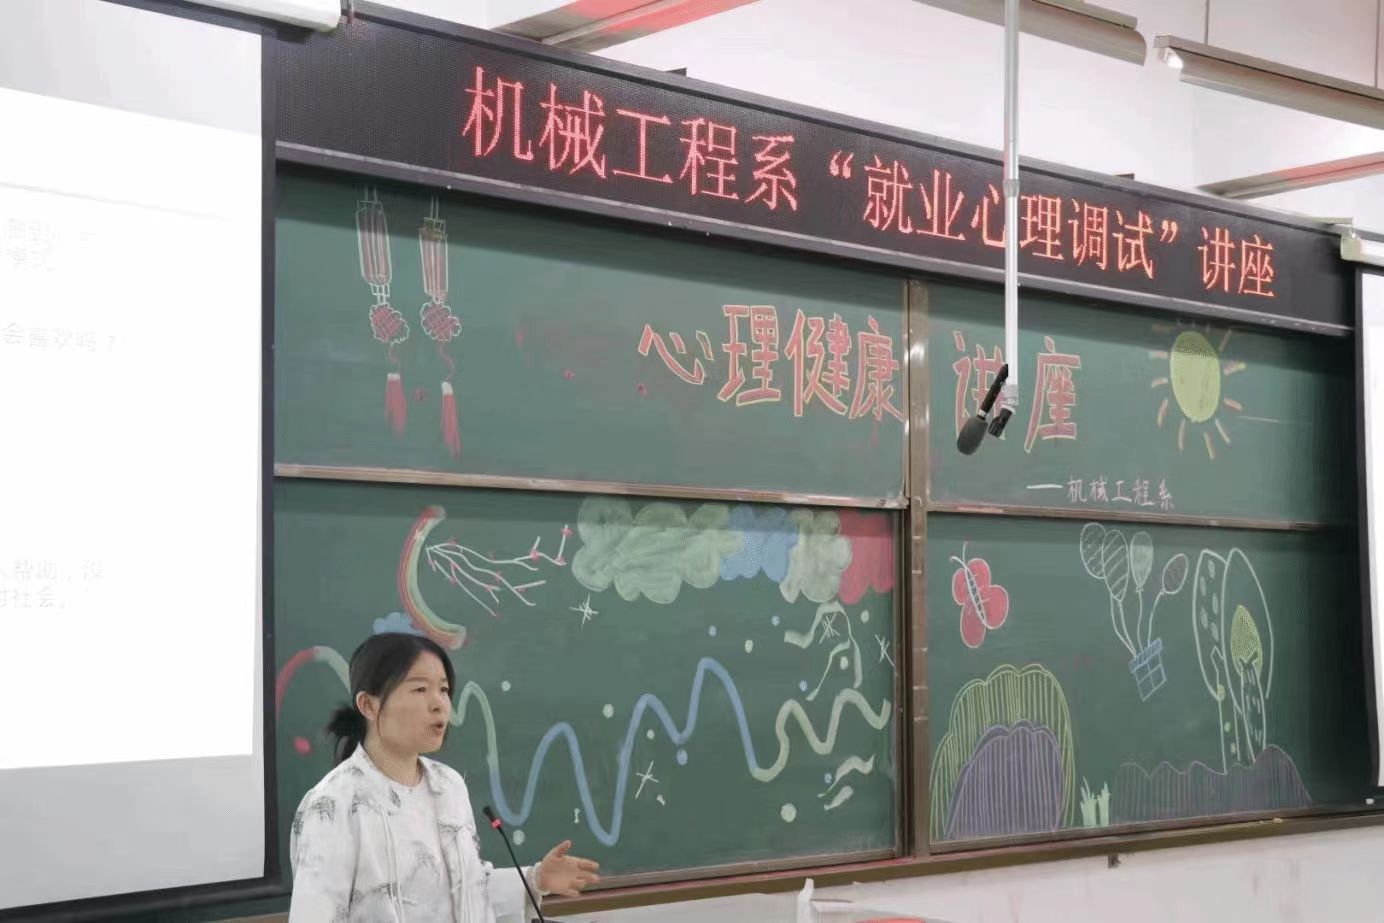 机械工程系“就业心理调试”讲座
心理健康讲座
——机械工程系
模式
会喜欢吗？
人帮助，没
对社会。